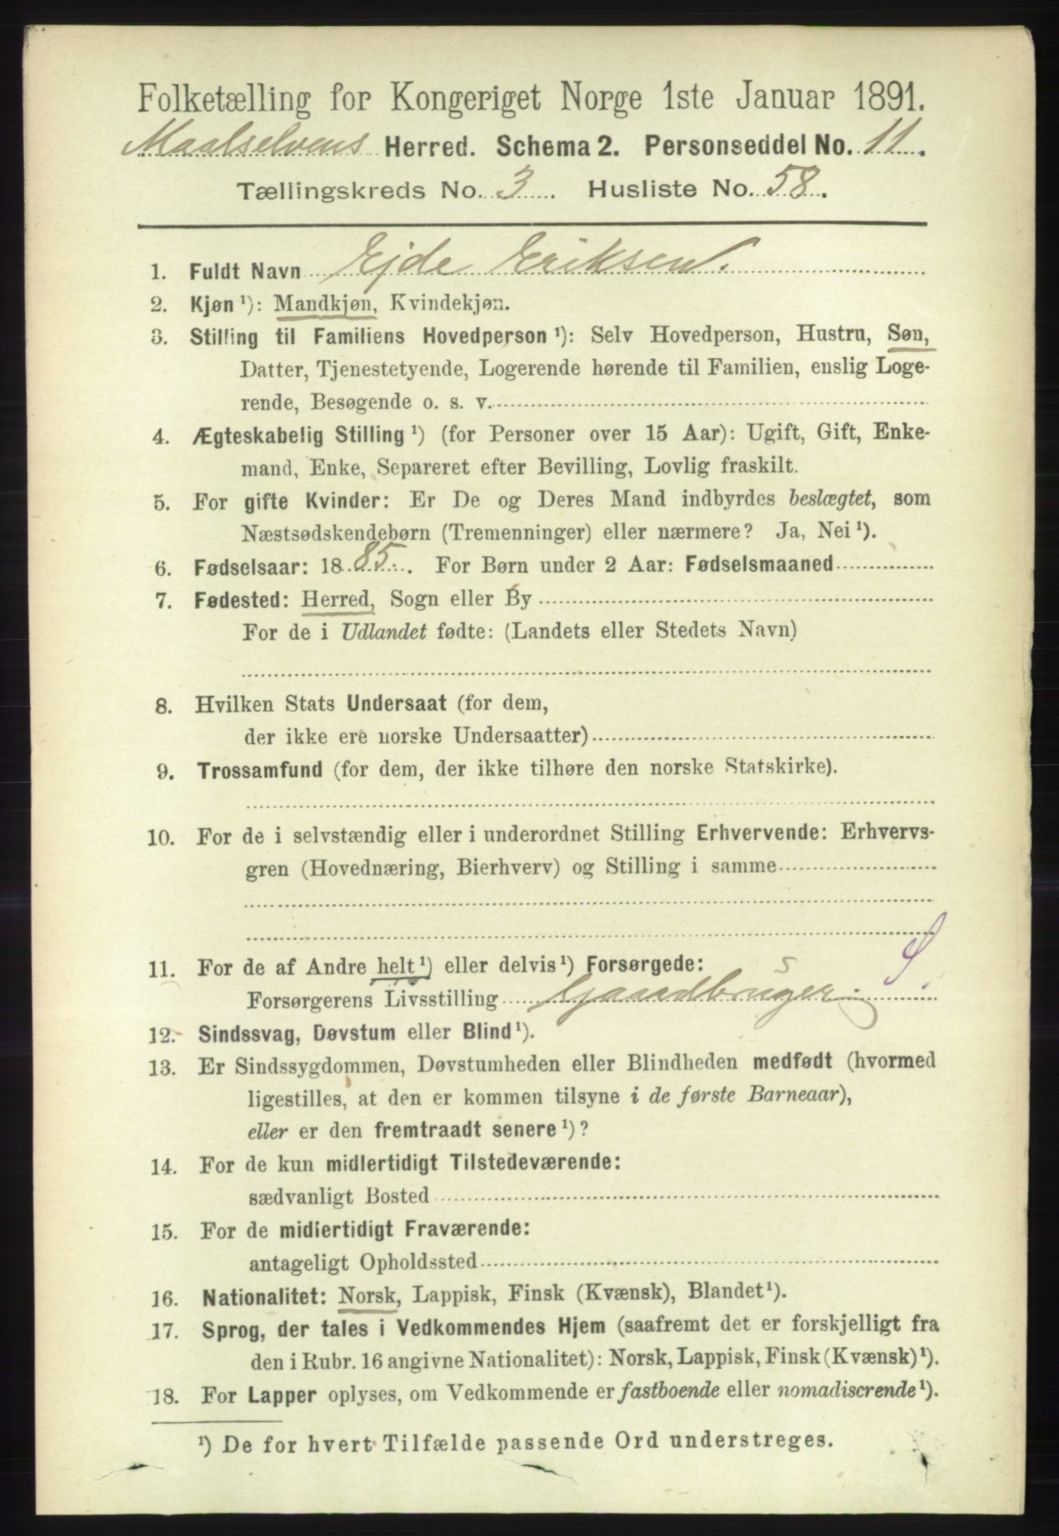 Folketælling for Kongeriget Norge 1ste Januar 1891.
Maalselvens Herred. Schema 2. Personseddel No. 11.
Tællingskreds No. 3. Husliste No. 58.
1. Fuldt Navn Ejde Eriksen.
2. Kjøn ¹): Mandkjøn, Kvindekjøn.
3. Stilling til Familiens Hovedperson ¹): Selv Hovedperson, Hustru, Søn,
Datter, Tjenestetyende, Logerende hørende til Familien, enslig Loge-
rende, Besøgende o. s. v.
4. Ægteskabelig Stilling ¹) (for Personer over 15 Aar): Ugift, Gift, Enke-
mand, Enke, Separeret efter Bevilling, Lovlig fraskilt.
5. For gifte Kvinder: Er De og Deres Mand indbyrdes beslægtet, som
Næstsødskendebørn (Tremenninger) eller nærmere? Ja, Nei ¹).
6. Fødselsaar: 1885. For Børn under 2 Aar: Fødselsmaaned
7. Fødested: Herred, Sogn eller By
For de i Udlandet fødte: (Landets eller Stedets Navn)
8. Hvilken Stats Undersaat (for dem,
der ikke ere norske Undersaatter)
9. Trossamfund (for dem, der ikke tilhøre den norske Statskirke).
10. For de i selvstændig eller i underordnet Stilling Erhvervende: Erhvervs-
gren (Hovednæring, Bierhverv) og Stilling i samme
11. For de af Andre helt ¹) eller delvis ¹) Forsørgede: S S.
Forsørgerens Livsstilling Gaardbruger.
12. Sindssvag, Døvstum eller Blind ¹).
13. Er Sindssygdommen, Døvstumheden eller Blindheden medfødt (hvormed
ligestilles, at den er kommen tilsyne i de første Barneaar),
eller er den fremtraadt senere ¹)?
14. For de kun midlertidigt Tilstedeværende:
sædvanligt Bosted
15. For de midlertidigt Fraværende:
antageligt Opholdssted
16. Nationalitet: Norsk, Lappisk, Finsk (Kvænsk), Blandet ¹).
17. Sprog, der tales i Vedkommendes Hjem (saafremt det er forskjelligt fra
den i Rubr. 16 angivne Nationalitet): Norsk, Lappisk, Finsk (Kvænsk) ¹).
18. For Lapper oplyses, om Vedkommende er fastboende eller nomadiserende ¹).
¹) De for hvert Tilfælde passende Ord understreges.